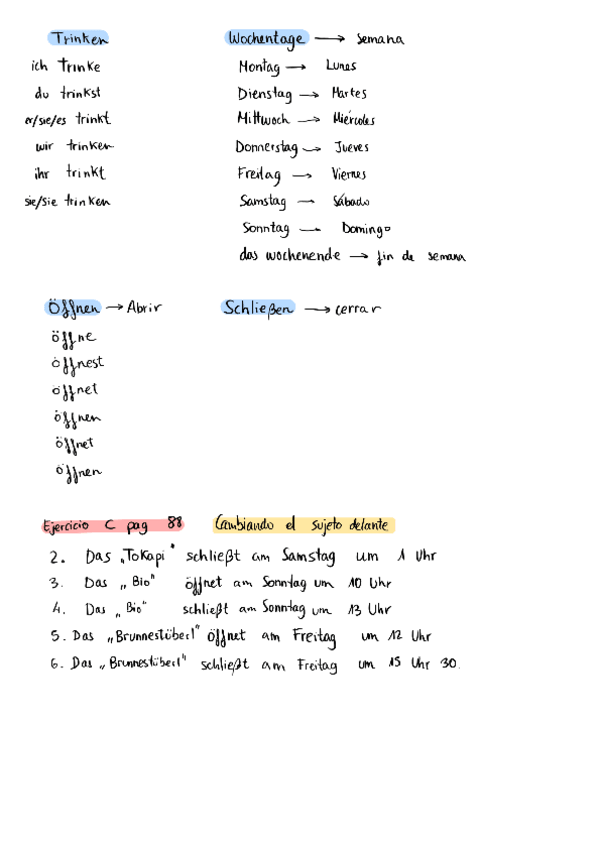 Trinken
ich trinke
du trinkst
er/sie/es trinkt
wir trinken
ihr trinkt
sie/sie trinken
Wochentage → semana
Montag → Lunes
Dienstag → Martes
Mittwoch → Miércoles
Donnerstag → Jueves
Freitag → Viernes
Samstag → Sábado
Sonntag — Domingo
das wochenende → fin de semana
Öffnen → Abrir
öffne
öffnest
öffnet
öffnen
öffnet
öffnen
Schließen → cerrar
Ejercicio C pag 88 Cambiando el sujeto delante
2. Das „Tokapi" schließt am Samstag um 1 Uhr
3. Das „Bio" öffnet am Sonntag um 10 Uhr
4. Das „Bio" schließt am Sonntag um 13 Uhr
5. Das „Brunnestüberl" öffnet am Freitag um 12 Uhr
6. Das „Brunnestüberl" schließt am Freitag um 15 Uhr 30.